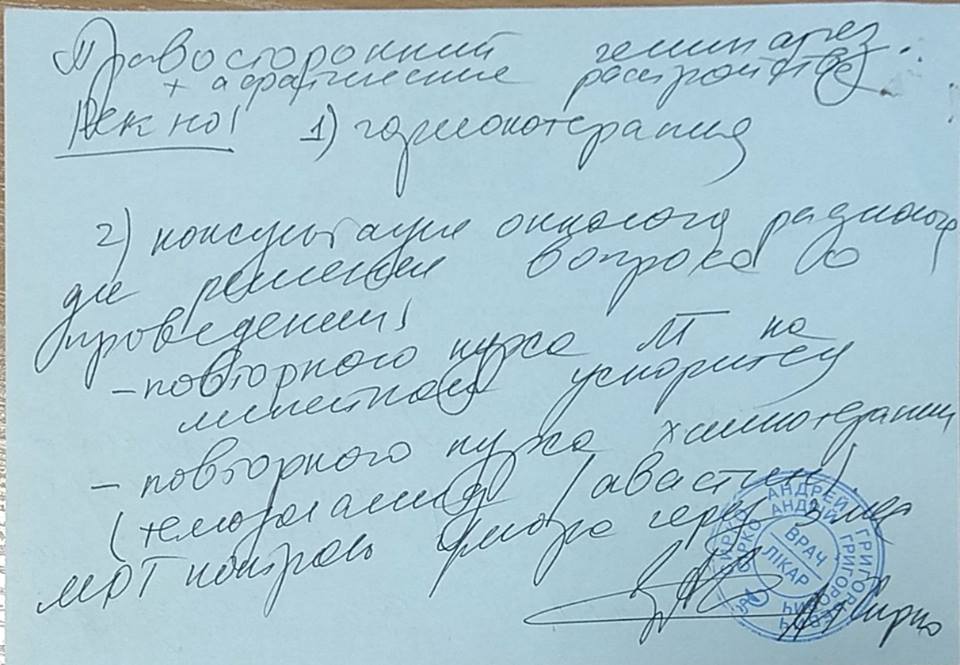 Правосторонний гемипарез.
+ афатические расстройства
Рек-но! 1) гормонотерапия
2) консультация онколога радиолога
для решения вопроса о
проведении!
- повторного курса ЛТ на
линейном ускорителе
- повторного курса химотерапии
(темодал /авастин/
МРТ контроль через 3 мес
АНДРЕЙ ГРИГОРЬЕВИЧ
АНДРІЙ ГРИГОРОВИЧ
СИРКО
ВРАЧ
ЛІКАР
А Г Сирко